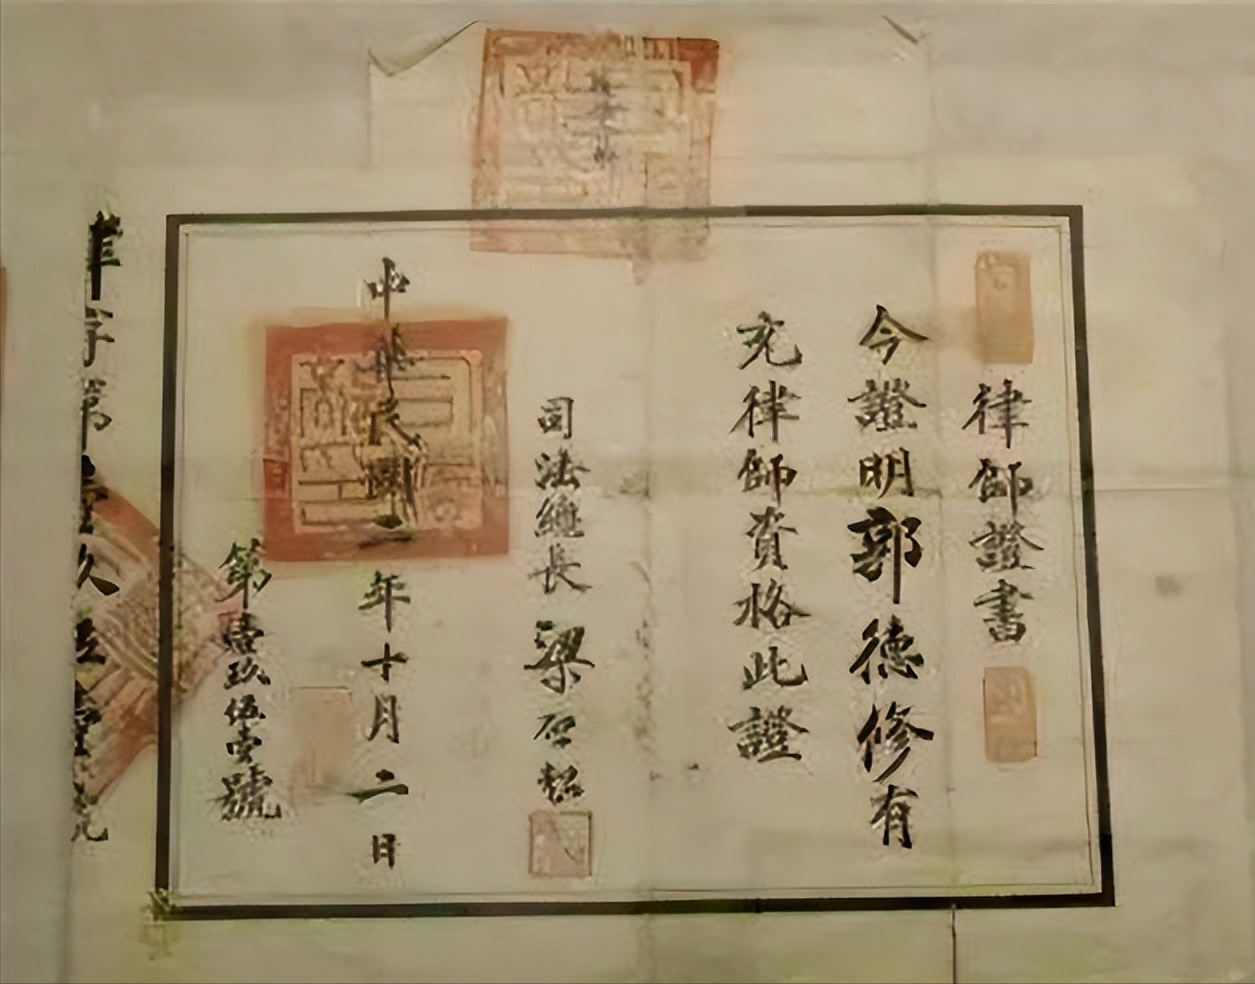 律師證書
今證明郭德修有
充律師資格此證
司法總長梁启超
中華民國二年十月二日
第壹玖伍壹號
律字第壹玖伍壹號